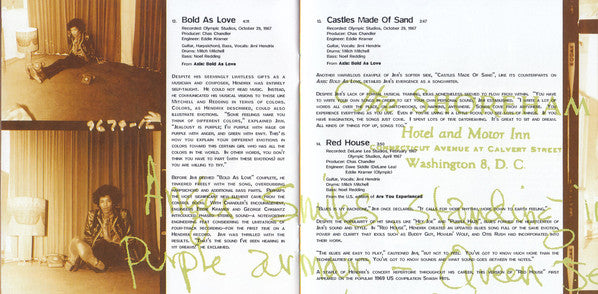 12. Bold As Love 4:11
Recorded: Olympic Studios, October 29, 1967
Producer: Chas Chandler
Engineer: Eddie Kramer
Guitar, Harpsichord, Bass, Vocals: Jimi Hendrix
Drums: Mitch Mitchell
Bass: Noel Redding
From Axis: Bold As Love
Despite his seemingly limitless gifts as a
guitarist and composer, Hendrix was entirely
self-taught. He could not read music. Instead,
he communicated his musical visions to those like
Mitchell and Redding in terms of colors.
Colors, as Hendrix described, could also
illustrate emotions. "Some feelings make you
think of different colors," explained Jimi.
"Jealousy is purple; I'm purple with rage or
purple with anger, and green with envy. This is
how you explain your different emotions in
colors toward this certain girl who has all the
colors in the world. In other words, you don't
think you have to part (with these emotions) but
you are willing to try."
Before Jimi deemed "Bold As Love" complete, he
tinkered freely with the song, overdubbing
harpsichord and additional bass parts. Perhaps
the most significant new element came from the
control room. With Chandler's encouragement,
engineers Eddie Kramer and George Chkiantz
introduced phased stereo sound—a masterstroke
engineering feat considering the limitations of
four-track recording—for the first time on a
Hendrix record. Jimi was thrilled with the
results. "That's the sound I've been hearing in
my dreams," he exclaimed.
13. Castles Made Of Sand 2:47
Recorded: Olympic Studios, October 29, 1967
Producer: Chas Chandler
Engineer: Eddie Kramer
Guitar, Vocals: Jimi Hendrix
Drums: Mitch Mitchell
Bass: Noel Redding
From Axis: Bold As Love
Another marvelous example of Jimi's softer side, "Castles Made Of Sand", like its counterparts on
Axis: Bold As Love, detailed Jimi's emergence as a songwriter.
Despite his lack of formal musical training, ideas nonetheless seemed to flow from within. "You have
to write your own songs in order to get your own personal sound," he established. "I write a lot of
words all over the place, on matchboxes, on napkins, anywhere. Songs come from anywhere. You
experience everything as you live. Even if you're living in a little room, you see a lot of things if you
have imagination, the songs just come. I spend lots of time daydreaming. It's great to sit and dream.
All kinds of things pop up, songs too."
14. Red House 3:50
Recorded: DeLane Lea Studios, February 1967
Olympic Studios, April 1967
Producer: Chas Chandler
Engineer: Dave Siddle (DeLane Lea)
Eddie Kramer (Olympic)
Guitar, Vocals: Jimi Hendrix
Drums: Mitch Mitchell
Bass: Noel Redding
From the U.K. version of Are You Experienced
Hotel and Motor Inn
Connecticut Avenue at Calvert Street
Washington 8, D. C.
"Blues is my backbone," Jimi once declared. "It calls for more rhythm, more down to earth feeling."
Despite the popularity of hit singles like "Hey Joe" and "Purple Haze", blues formed the heartcenter of
Jimi's sound and style. In "Red House", Hendrix created an updated blues song full of the same emotion,
power and clarity that exiled such as Buddy Guy, Howlin' Wolf, and Otis Rush had incorporated into
their work.
"The blues are easy to play," cautioned Jimi, "but not to feel. You've got to know much more than the
technicalities of notes. You've got to know sounds and what sound goes between the notes."
A staple of Hendrix's concert repertoire throughout his career, this version of "Red House" first
appeared on the popular 1969 US compilation Smash Hits.
Purple armour - Queen